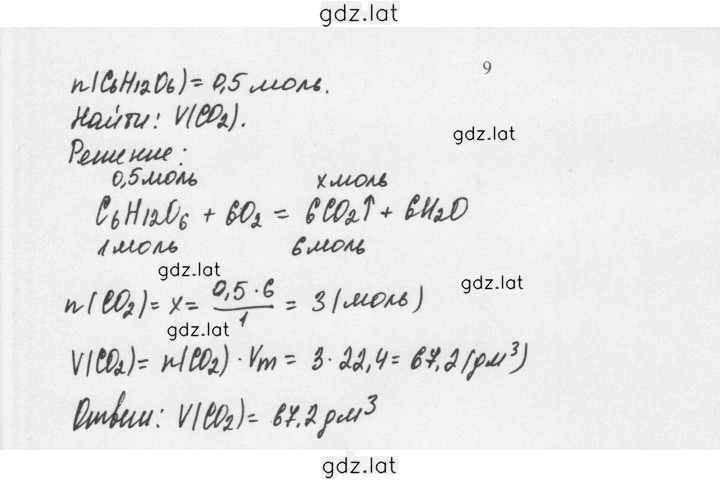 gdz.lat
9
n(C6H12O6) = 0,5 моль.
Найти: V(CO2).
gdz.lat
Решение:
0,5 моль x моль
C6H12O6 + 6O2 = 6CO2↑ + 6H2O
1 моль 6 моль
gdz.lat
gdz.lat
n(CO2) = x = 0,5 · 6 / 1 = 3 (моль)
gdz.lat
V(CO2) = n(CO2) · Vm = 3 · 22,4 = 67,2 (дм³)
Ответ: V(CO2) = 67,2 дм³
gdz.lat